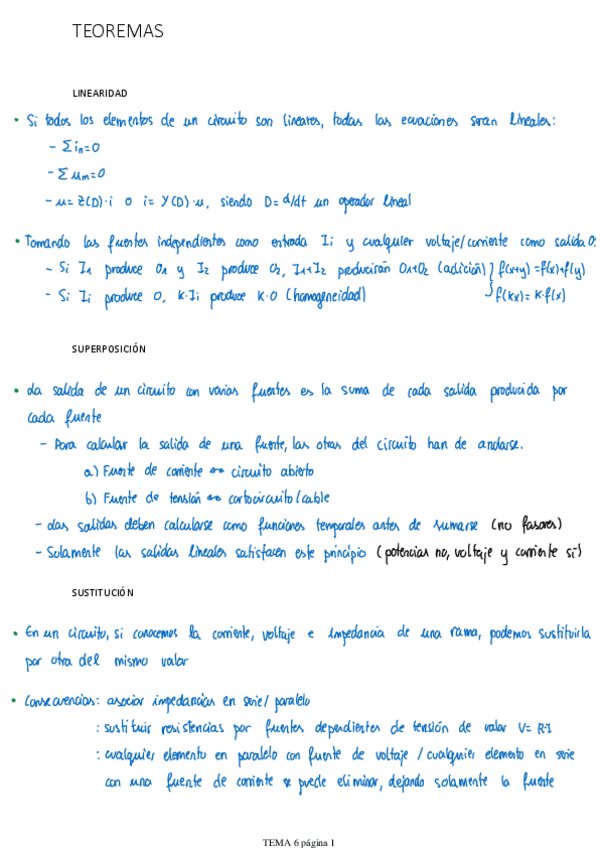 TEOREMAS
LINEARIDAD
• Si todos los elementos de un circuito son lineares, todas las ecuaciones seran lineales:
- Σin=0
- Σum=0
- u= Z(D)·i o i= Y(D)·u, siendo D= d/dt un operador lineal
• Tomando las fuentes independientes como entrada Ii y cualquier voltaje/corriente como salida O:
- Si I1 produce O1 y I2 produce O2, I1+I2 producirán O1+O2 (adición) } f(x+y)=f(x)+f(y)
- Si Ii produce O, K·Ii produce K·O (homogeneidad) f(kx)= K·f(x)
SUPERPOSICIÓN
• La salida de un circuito con varias fuentes es la suma de cada salida producida por
cada fuente
- Para calcular la salida de una fuente, las otras del circuito han de anularse.
a) Fuente de corriente ↔ circuito abierto
b) Fuente de tensión ↔ cortocircuito/cable
- Las salidas deben calcularse como funciones temporales antes de sumarse (no fasores)
- Solamente las salidas lineales satisfacen este principio (potencias no, voltaje y corriente sí)
SUSTITUCIÓN
• En un circuito, si conocemos la corriente, voltaje e impedancia de una rama, podemos sustituirla
por otra del mismo valor
• Consecuencias: asociar impedancias en serie/ paralelo
: sustituir resistencias por fuentes dependientes de tensión de valor V= R·I
: cualquier elemento en paralelo con fuente de voltaje / cualquier elemento en serie
con una fuente de corriente se puede eliminar, dejando solamente la fuente
TEMA 6 página 1